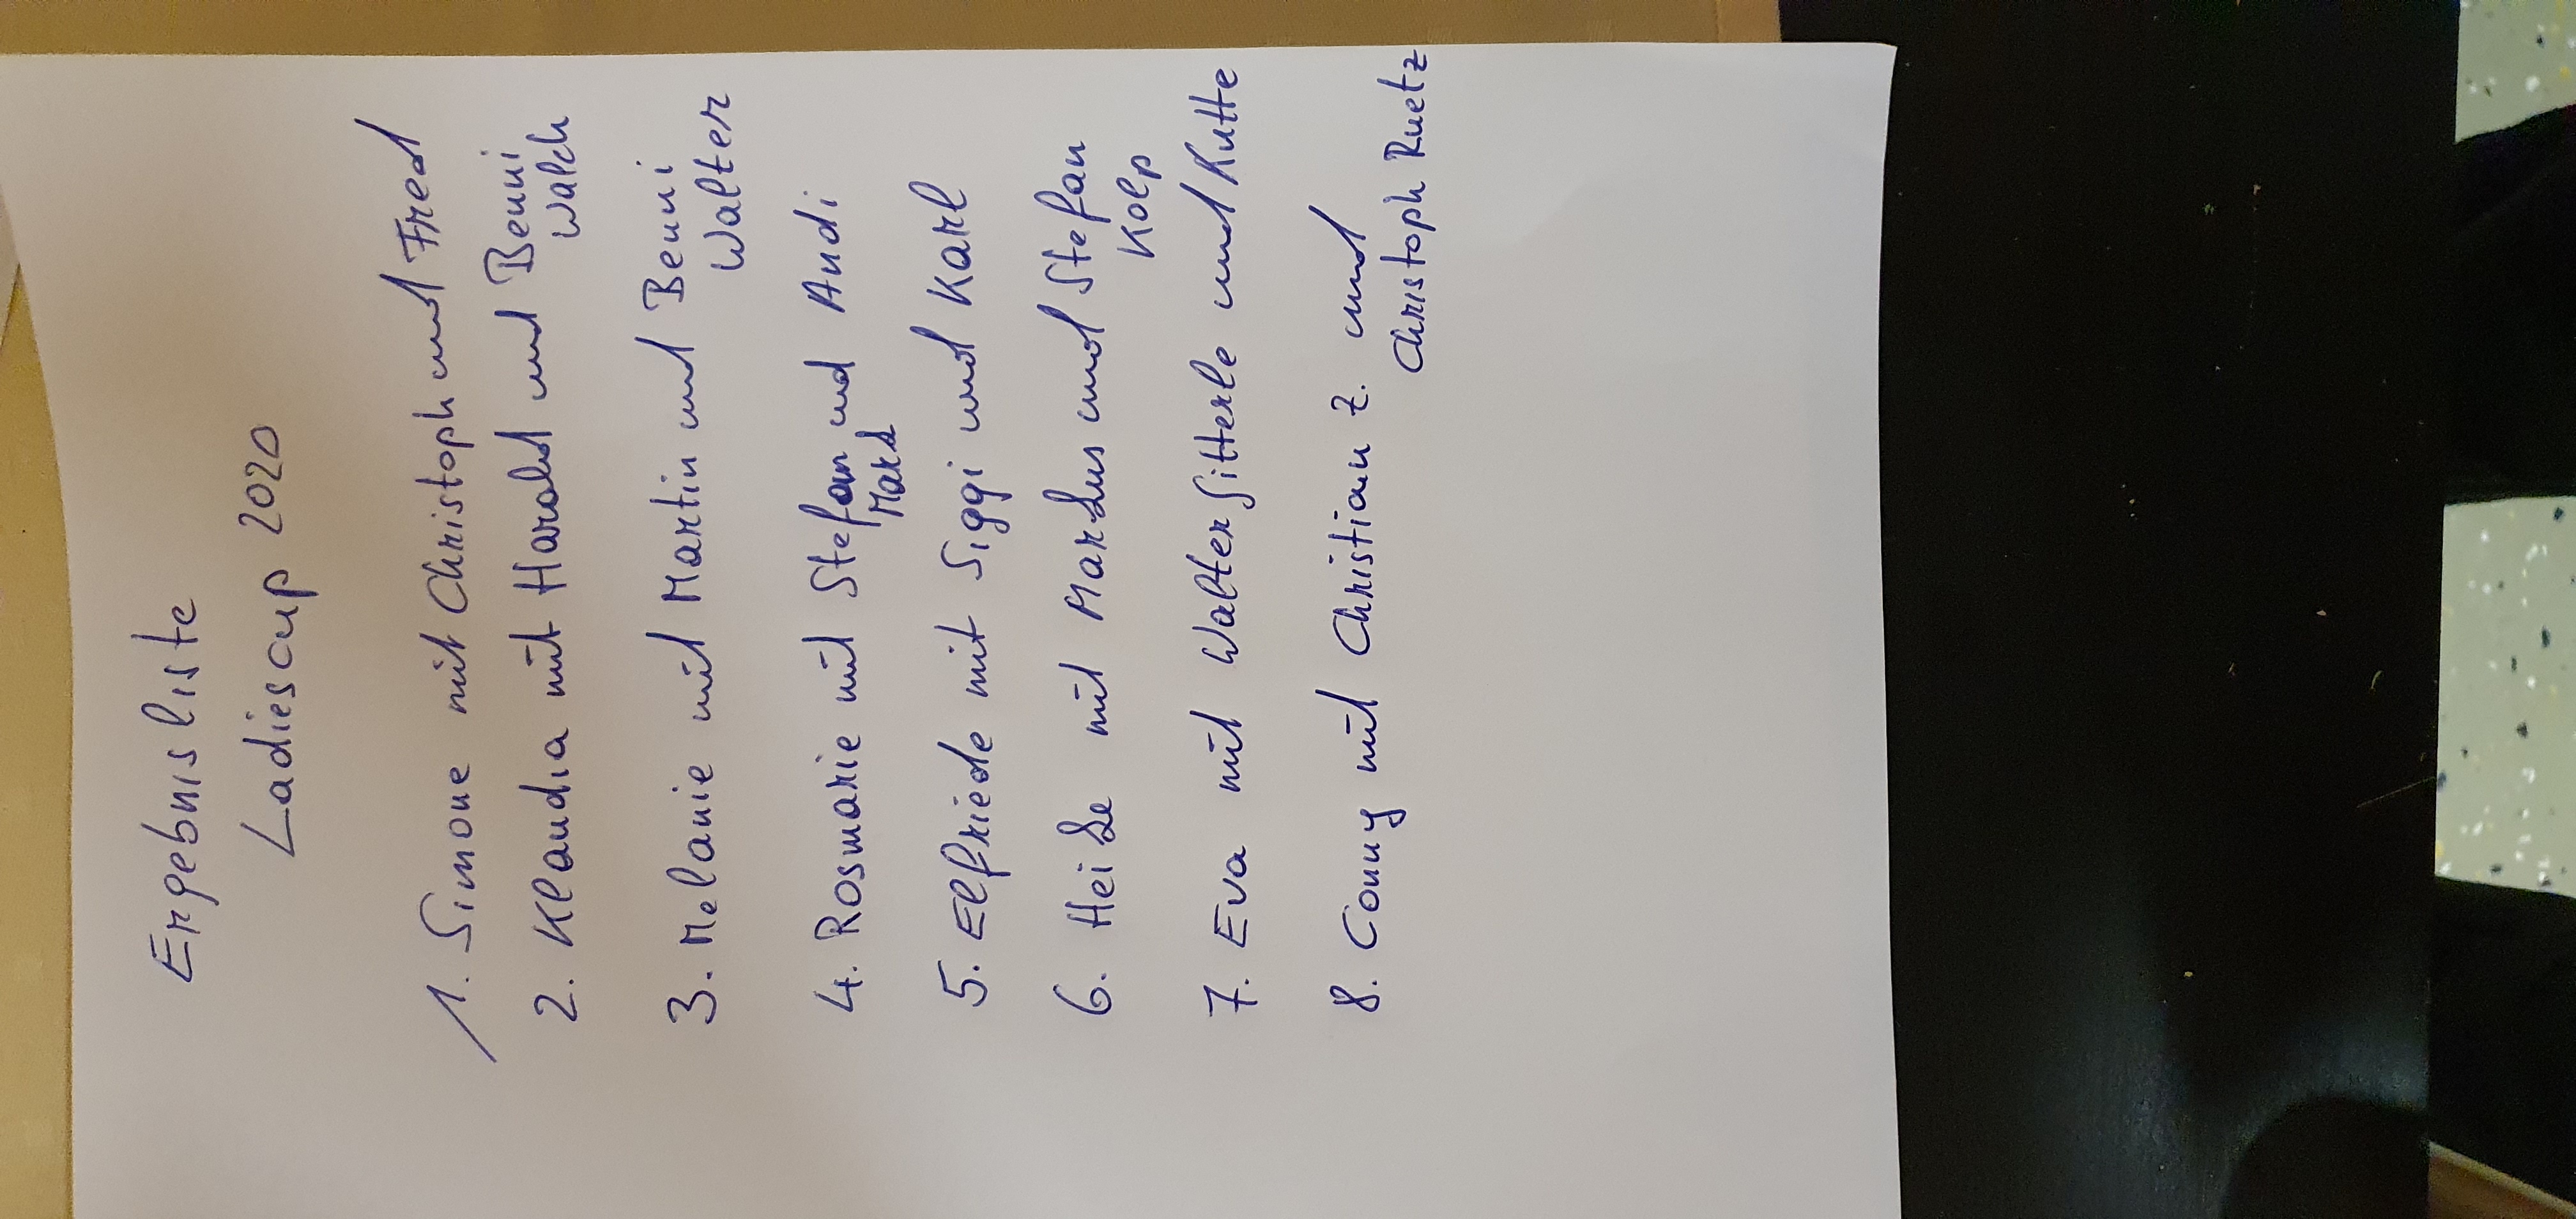 Ergebnisliste
Ladiescup 2020
1. Simone mit Christoph und Fred
2. Klaudia mit Harald und Benni
Walch
3. Melanie mit Martin und Benni
Walter
4. Rosmarie mit Stefan und Andi
Mark
5. Elfriede mit Siggi und Karl
6. Heike mit Markus und Stefan
Kolp
7. Eva mit Walter Sitterle und Kutte
8. Conny mit Christian Z. und
Christoph Ruetz